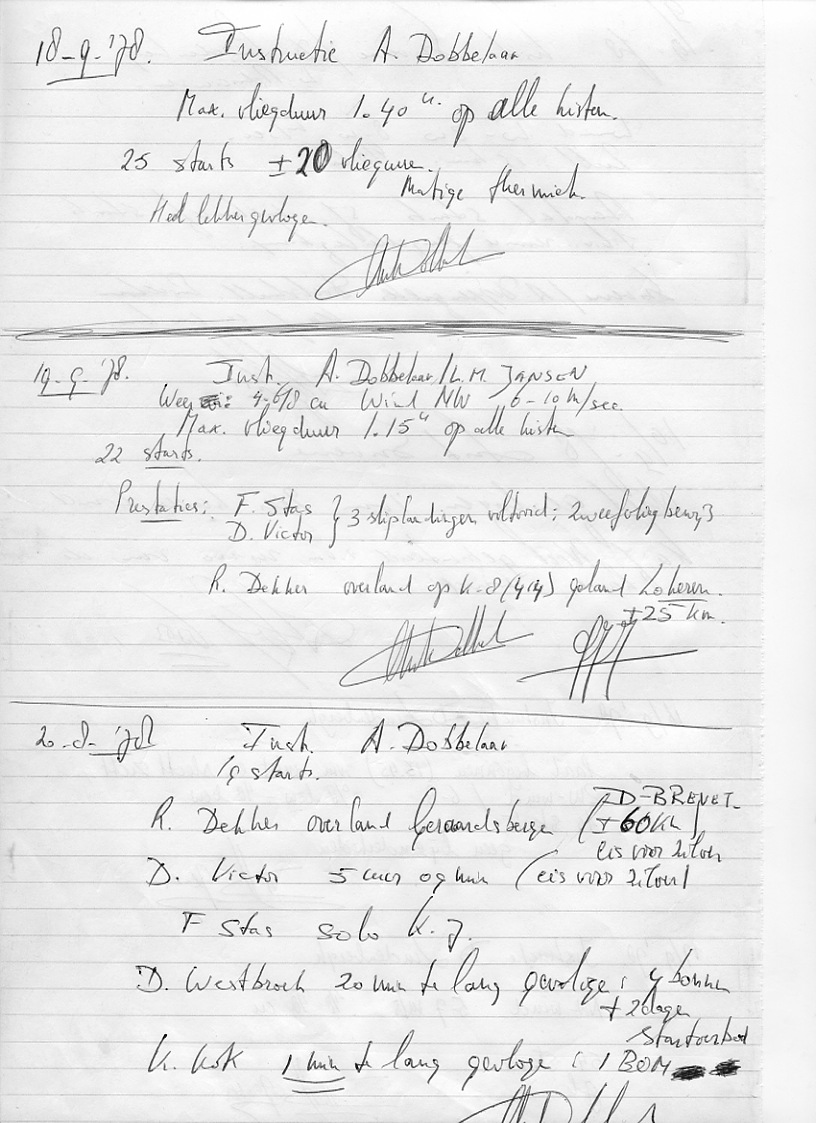 18-9-'78. Instructie A. Dobbelaar
Max. vliegduur 1.40 u. op alle kisten.
25 starts ± 20 vlieguren.
Matige thermiek.
Heel lekker gevlogen.
19-9-'78. Inst. A. Dobbelaar/L.M. JANSEN
Weer: 4-6/8 cu Wind NW 6-10 m/sec.
Max. vliegduur 1.15 u op alle kisten
22 starts.
Prestaties: F. Stas
D. Victor } 3 sliplandingen voltooid; zweefvliegbewijs
R. Dekker overland op K-8 (414) geland Lokeren.
± 25 km.
20-9-'78 Inst. A. Dobbelaar
19 starts.
R. Dekker overland Geraardsbergen (± 60 km)
D-BREVET
eis voor zilver
D. Victor 5 uur 09 min (eis voor zilver)
F Stas solo K.7.
D. Westbroek 20 min te lang gevlogen: 4 bomen
+ 2 dagen
startverbod
K. Kok 1 min te lang gevlogen: 1 BOM